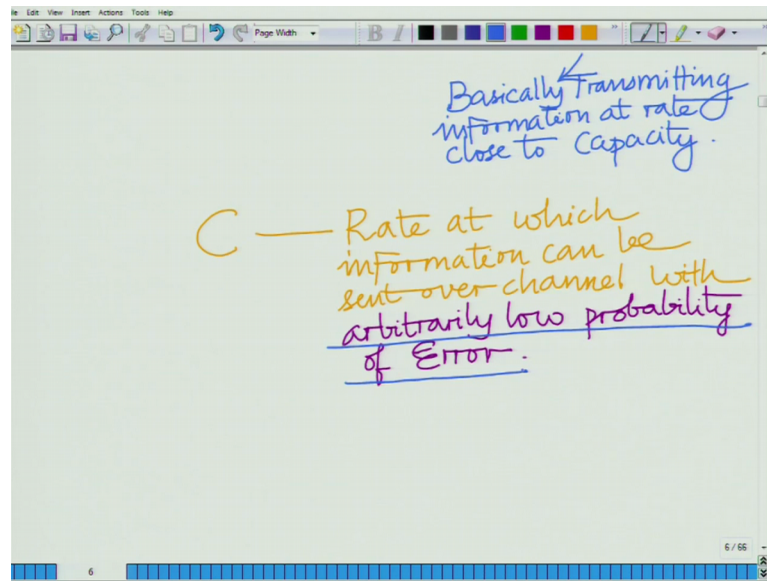 le Edit View Insert Actions Tools Help
Page Width
B I
Basically Transmitting
information at rate
close to Capacity.
C — Rate at which
information can be
sent over channel with
arbitrarily low probability
of Error.
6 / 66
6